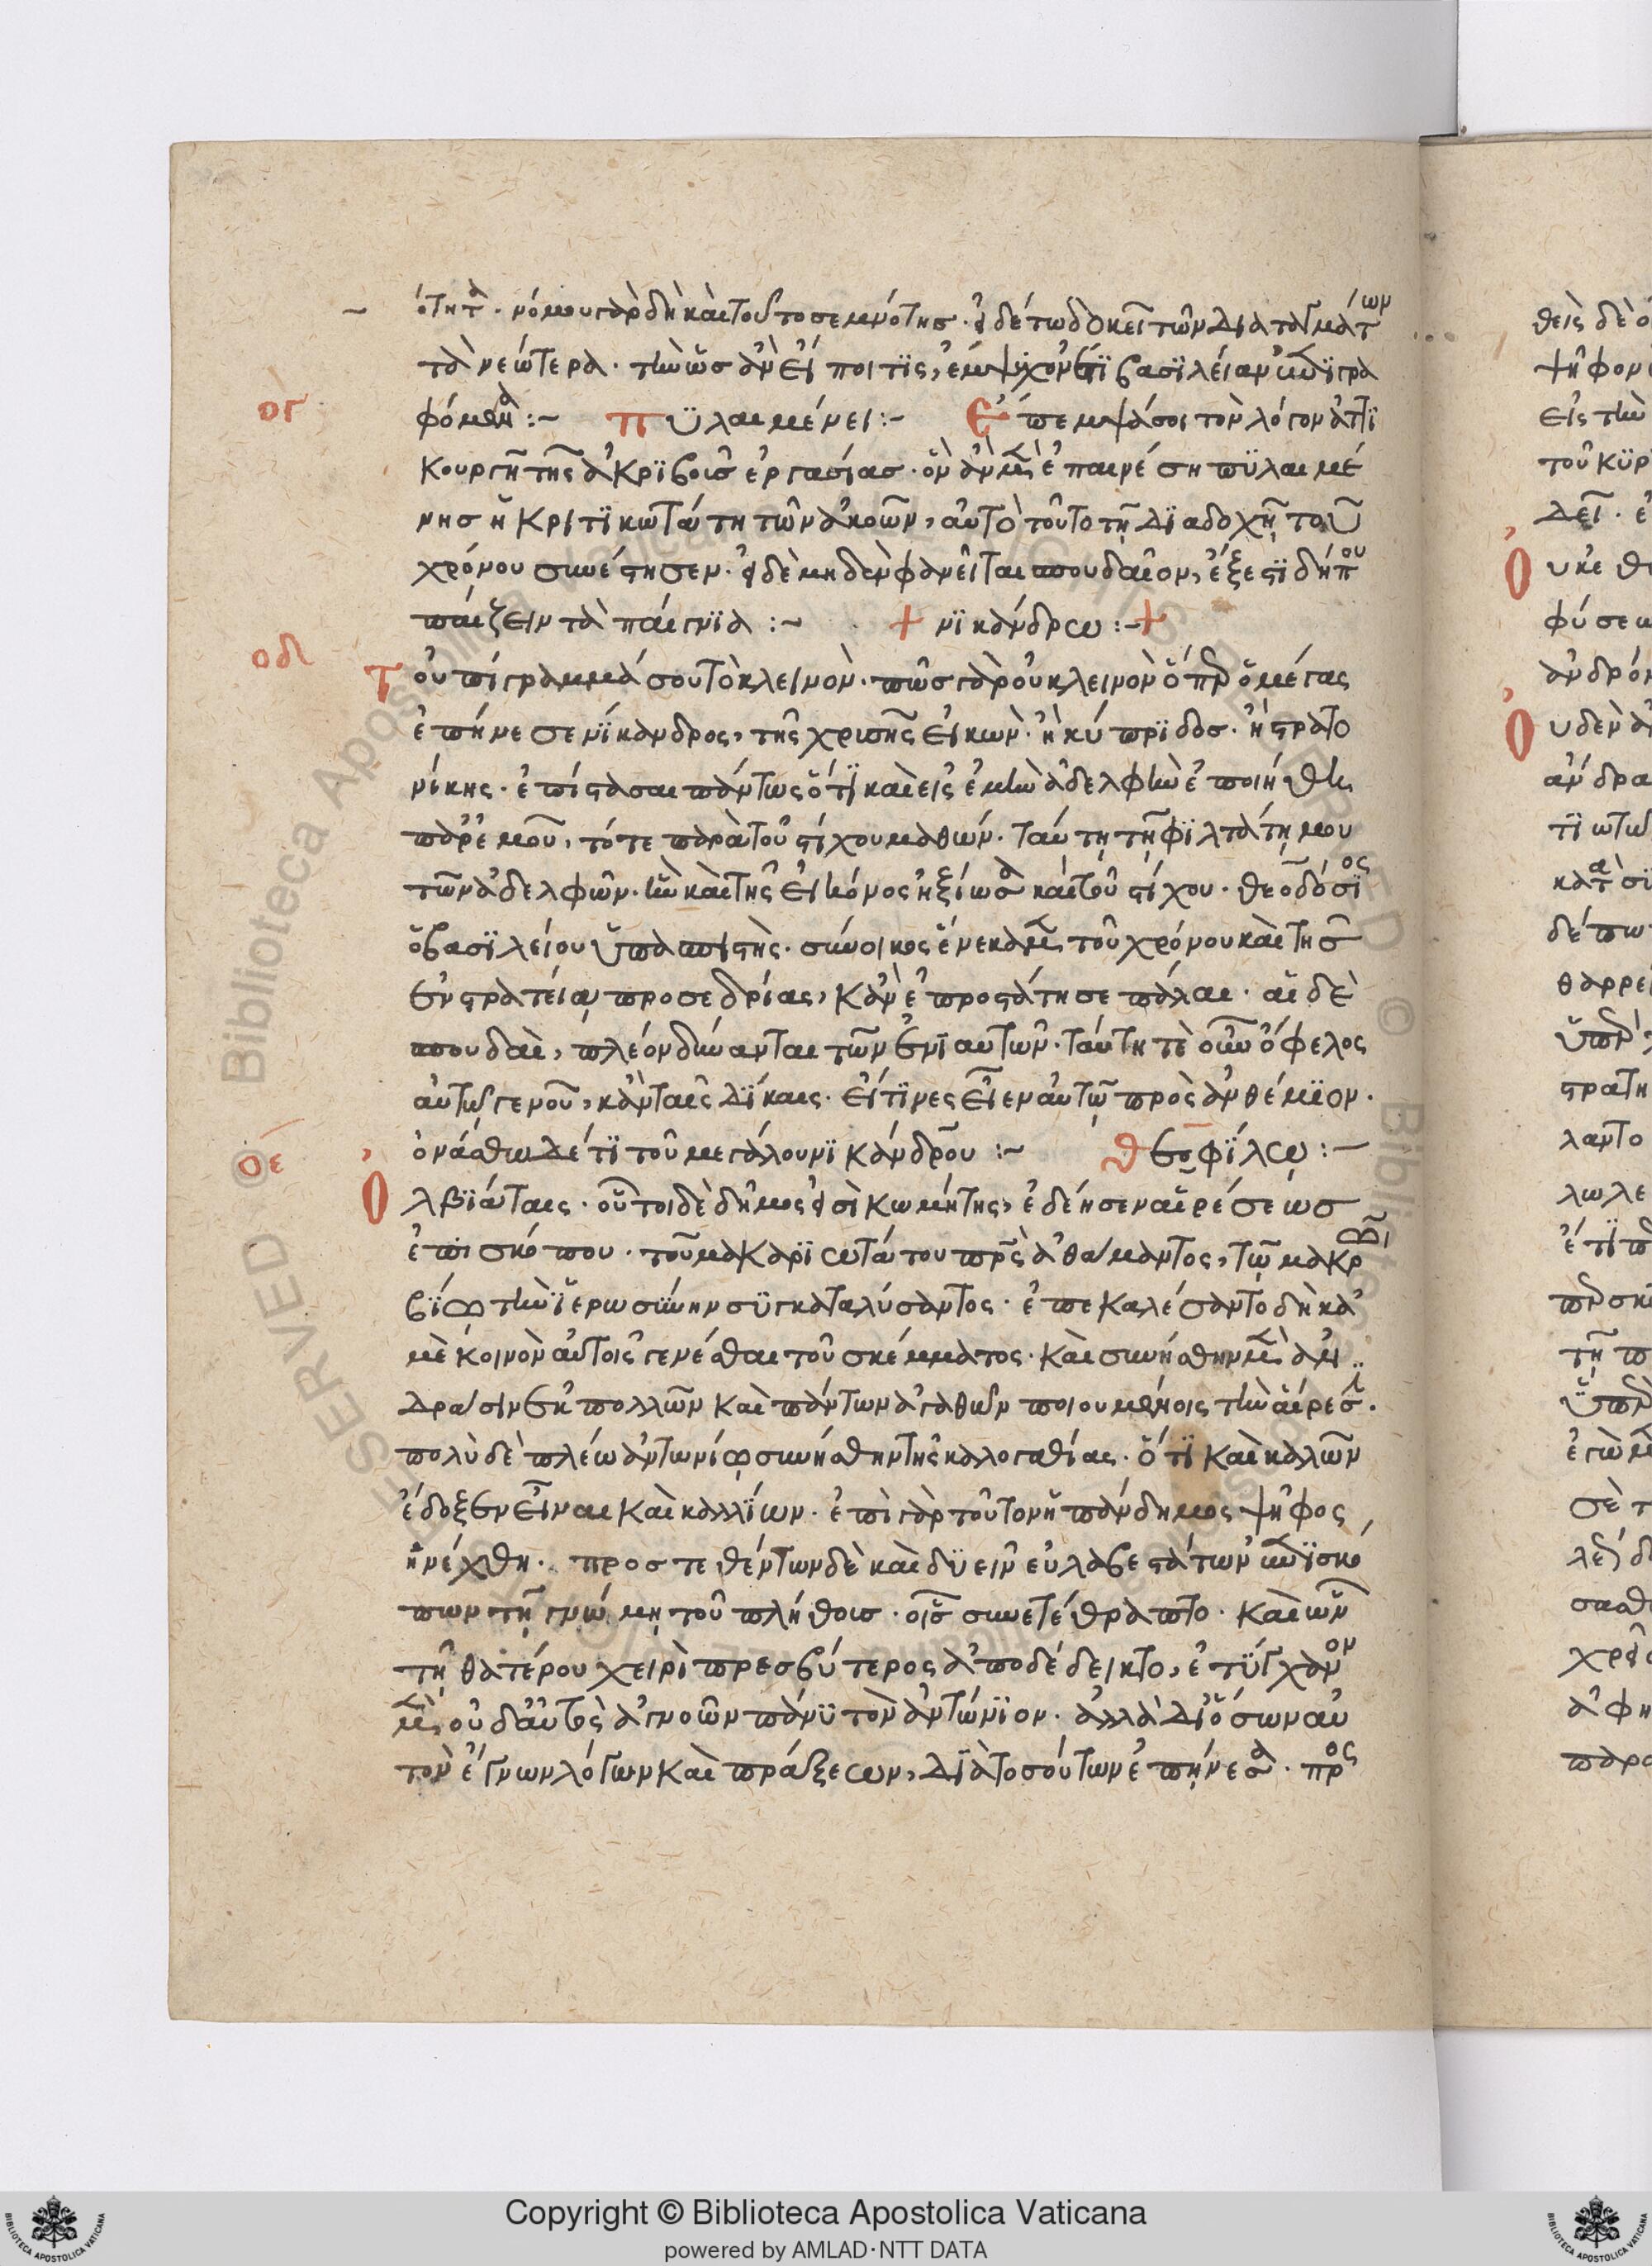 ότητα. νόμου γὰρ δὴ καὶ τοῦτο σεμνότης. εἰ δέ τω δοκεῖ τῶν διαταγμάτων
τὰ νεώτερα. τὴν ὡς ἂν εἴποι τις, ἔμψυχον βασιλείαν ὑπογρα
φόμενα :~ Πυλαιμένει :~ Ἔπεμψά σοι τὸν λόγον ἀττι
κουργῆ τῆς ἀκριβοῦς ἐργασίας. ὃν ἂν μὲν ἐπαινέσῃ πυλαιμέ
νης ἡ κριτικωτάτη τῶν ἀκοῶν, αὐτὸ τοῦτο τῇ διαδοχῇ τοῦ
χρόνου συνέστησεν. εἰ δὲ μηδὲν φανεῖται σπουδαῖον, ἔξεστι δήπου
παίζειν τὰ παίγνια :~ + νικάνδρω :~ +
ογ
οδ
Τοὐπίγραμμά σου τὸ κλεινὸν. πῶς γὰρ οὐ κλεινὸν ὅπερ ὁ μέγας
ἐπήνεσε νίκανδρος, τῆς χρισῆς εἰκὼν. ἢ κύπριδος. ἢ στρατο
νίκης. ἐπίστασαι πάντως ὅτι καὶ εἰς ἐμὴν ἀδελφὴν ἐποιήθη
παρ' ἐμοῦ, τότε παρὰ τοῦ στίχου μαθών. ταύτῃ τῇ φιλτάτῃ μου
τῶν ἀδελφῶν. ἣν καὶ τῆς εἰκόνος ἠξίωσα καὶ τοῦ στίχου. θεοδόσιος
ὁ βασιλείου ὑπασπιστὴς. σύνοικος ἕνεκα μὲν τοῦ χρόνου καὶ τῆς
ἐν στρατείᾳ προσεδρίας, κἂν ἐπροστάτησε πάλαι. αἱ δὲ
σπουδαὶ, πλέον δύνανται τῶν ἐνιαυτῶν. ταύτη τὲ οὖν ὄφελος
αὐτῆς γενοῦ, κἂν ταῖς δίκαις. εἴ τινες εἶεν αὐτῷ πρὸς ἀνθέμιον.
ὀνάσθω δέ τι τοῦ μεγάλου νικάνδρου :~ Θεοφίλω :~
οε
Ὀλβιάταις. οὗτοι δὲ δῆμος εἰσὶ κωμήτης, ἐδέησεν αἱρέσεως
ἐπισκόπου. τοῦ μακαριωτάτου πατρὸς ἀθάμαντος, τῷ μακρο
βίῳ τὴν ἱερωσύνην συγκαταλύσαντος. ἐπεκαλέσαντο δὴ κἀ
μὲ κοινὸν αὐτοῖς γενέσθαι τοῦ σκέμματος. καὶ συνήσθην μὲν ἀν
δράσιν ἐκ πολλῶν καὶ πάντων ἀγαθῶν ποιουμένοις τὴν αἵρεσιν.
πολὺ δὲ πλέω ἀντωνίῳ συνήσθην τῆς καλογαθίας. ὅτι καὶ καλῶν
ἔδοξεν εἶναι καὶ καλλίων. ἐπὶ γὰρ τοῦτον ἡ πάνδημος ψῆφος
ἠνέχθη. προστεθέντων δὲ καὶ δυεῖν εὐλαβεστάτων ἐπισκό
πων τῇ γνώμῃ τοῦ πλήθους. οἷς συνετέθραπτο. καὶ ὧν
τῇ θατέρου χειρὶ πρεσβύτερος ἀποδέδεικτο, ἐτύγχανον
μὲν οὐδ' αὐτὸς ἀγνοῶν πάνυ τὸν ἀντώνιον. ἀλλὰ δι' ὅσων αὐ
τὸν ἔγνων λόγων καὶ πράξεων, διὰ τοσούτων ἐπήνεσα. πρὸς
Copyright © Biblioteca Apostolica Vaticana
powered by AMLAD·NTT DATA